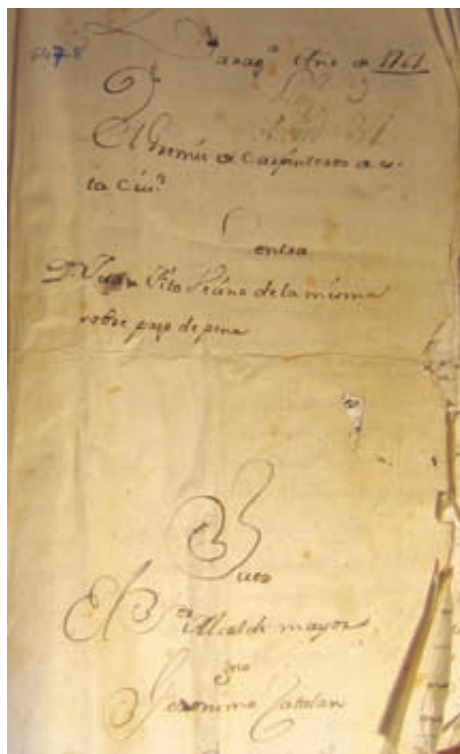 6478
Zarag.ª Año de 1761
El Gremio de Carpinteros de es-
ta Ciu.d
Contra
Juan Vezino de la misma
sobre pago de pena
Juez
El S.or Alcalde mayor
Geronimo Catalan